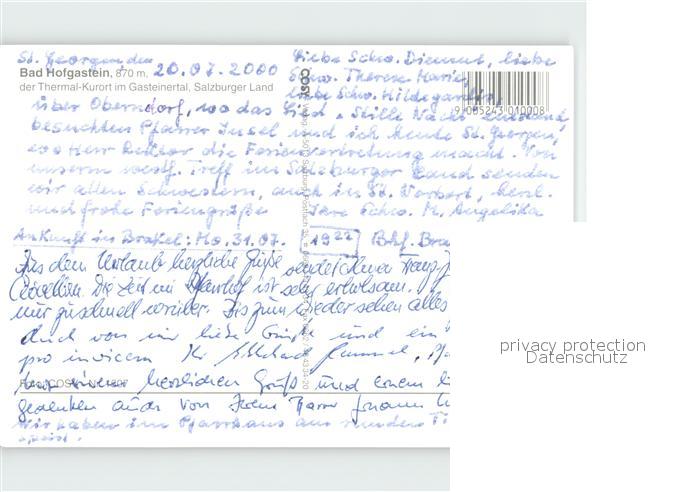 St. Georgen, den 20.07.2000
Bad Hofgastein, 870 m,
der Thermal-Kurort im Gasteinertal, Salzburger Land
Liebe Schw. Dietmut, liebe
Schw. Therese Marie,
liebe Schw. Hildegardis,
über Oberndorf, wo das Lied "Stille Nacht" entstand,
besuchten Pfarrer Insel und ich heute St. Georgen,
wo Herr Rektor die Ferienvertretung macht. Von
unserm westf. Treff im Salzburger Land senden
wir allen Schwestern, auch in St. Norbert, herzl.
und frohe Feriengrüße Ihre Schw. M. Angelika
Ankunft in Brakel: Mo, 31.07. 19 22 Bhf. Bra
Aus dem Urlaub herzliche Grüße sendet Ihnen
Die Zeit im Pfarrhof ist sehr erholsam.
nur zu schnell vorüber. Bis zum wieder sehen alles
Auch von mir liebe Grüße und ein
pro invicem Ihr
herzlichen Gruß und einem
gedenken auch von Ihrem Pfarrer Johann
Wir haben im Pfarrhaus am runden
speist.
COSY
9 005243 010008
privacy protection
Datenschutz